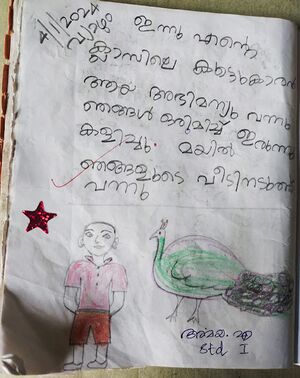 4/1/2024
വ്യാഴം
ഇന്നു എന്റെ
ക്ലാസിലെ കൂട്ടുകാരൻ
ആയ അഭിമന്യു വന്നു
ഞങ്ങൾ ഒരുമിച്ച് ഇരുന്നു
കളിച്ചു. മയിൽ
ഞങ്ങളുടെ വീടിനടുത്ത്
വന്നു
Std I